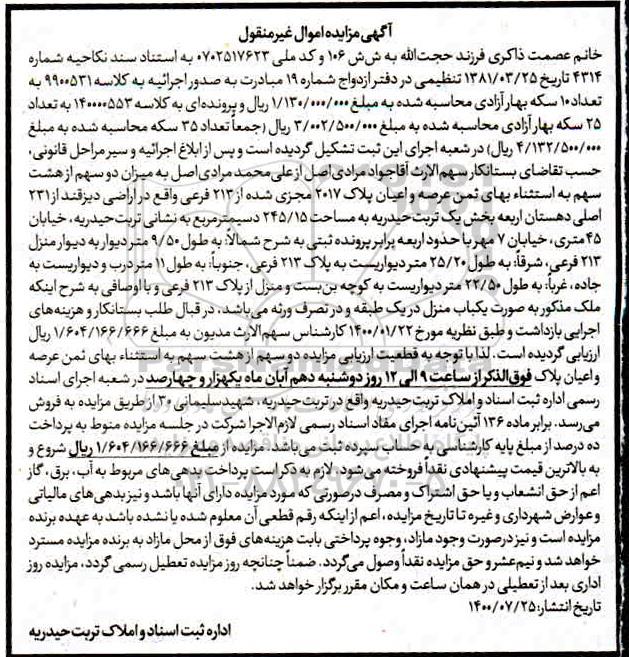 آگهی مزایده اموال غیرمنقول
خانم عصمت ذاکری فرزند حجت‌الله به ش ش ۱۰۶ و کد ملی ۰۷۰۲۵۱۷۶۲۳ به استناد سند نکاحیه شماره
۴۳۱۴ تاریخ ۱۳۸۱/۰۳/۲۵ تنظیمی در دفتر ازدواج شماره ۱۹ مبادرت به صدور اجرائیه به کلاسه ۹۹۰۰۵۳۱ به
تعداد ۱۰ سکه بهار آزادی محاسبه شده به مبلغ ۱/۱۳۰/۰۰۰/۰۰۰ ریال و پرونده‌ای به کلاسه ۱۴۰۰۰۰۵۵۳ به تعداد
۲۵ سکه بهار آزادی محاسبه شده به مبلغ ۳/۰۰۲/۵۰۰/۰۰۰ ریال (جمعاً تعداد ۳۵ سکه محاسبه شده به مبلغ
۴/۱۳۲/۵۰۰/۰۰۰ ریال) در شعبه اجرای این ثبت تشکیل گردیده است و پس از ابلاغ اجرائیه و سیر مراحل قانونی،
حسب تقاضای بستانکار سهم الارث آقاجواد مرادی اصل از علی‌محمد مرادی اصل به میزان دو سهم از هشت
سهم به استثناء بهای ثمن عرصه و اعیان پلاک ۲۰۱۷ مجزی شده از ۲۱۳ فرعی واقع در اراضی دیزقند از ۲۳۱
اصلی دهستان اربعه بخش یک تربت حیدریه به مساحت ۲۴۵/۱۵ دسیمترمربع به نشانی تربت حیدریه، خیابان
۴۵ متری، خیابان ۷ مهر با حدود اربعه برابر پرونده ثبتی به شرح شمالاً: به طول ۹/۵۰ متر دیوار به دیوار منزل
۲۱۳ فرعی، شرقاً: به طول ۲۵/۲۰ متر دیواریست به پلاک ۲۱۳ فرعی، جنوباً: به طول ۱۱ متر درب و دیواریست به
جاده، غرباً: به طول ۲۲/۵۰ متر دیواریست به کوچه بن‌بست و منزل از پلاک ۲۱۳ فرعی و با اوصافی به شرح اینکه
ملک مذکور به صورت یکباب منزل در یک طبقه و در تصرف ورثه می‌باشد، در قبال طلب بستانکار و هزینه‌های
اجرایی بازداشت و طبق نظریه مورخ ۱۴۰۰/۰۱/۲۲ کارشناس سهم الارث مدیون به مبلغ ۱/۶۰۴/۱۶۶/۶۶۶ ریال
ارزیابی گردیده است. لذا با توجه به قطعیت ارزیابی مزایده دو سهم از هشت سهم به استثناء بهای ثمن عرصه
و اعیان پلاک فوق‌الذکر از ساعت ۹ الی ۱۲ روز دوشنبه دهم آبان ماه یکهزار و چهارصد در شعبه اجرای اسناد
رسمی اداره ثبت اسناد و املاک تربت حیدریه واقع در تربت حیدریه، شهید سلیمانی ۳۰ از طریق مزایده به فروش
می‌رسد. برابر ماده ۱۳۶ آئین‌نامه اجرای مفاد اسناد رسمی لازم الاجرا شرکت در جلسه مزایده منوط به پرداخت
ده درصد از مبلغ پایه کارشناسی به حساب سپرده ثبت می‌باشد. مزایده از مبلغ ۱/۶۰۴/۱۶۶/۶۶۶ ریال شروع و
به بالاترین قیمت پیشنهادی نقداً فروخته می‌شود. لازم به ذکر است پرداخت بدهی‌های مربوط به آب، برق، گاز
اعم از حق انشعاب و یا حق اشتراک و مصرف درصورتی که مورد مزایده دارای آنها باشد و نیز بدهی‌های مالیاتی
و عوارض شهرداری و غیره تا تاریخ مزایده، اعم از اینکه رقم قطعی آن معلوم شده یا نشده باشد به عهده برنده
مزایده است و نیز درصورت وجود مازاد، وجوه پرداختی بابت هزینه‌های فوق از محل مازاد به برنده مزایده مسترد
خواهد شد و نیم‌عشر و حق مزایده نقداً وصول می‌گردد. ضمناً چنانچه روز مزایده تعطیل رسمی گردد، مزایده روز
اداری بعد از تعطیلی در همان ساعت و مکان مقرر برگزار خواهد شد.
تاریخ انتشار: ۱۴۰۰/۰۷/۲۵
اداره ثبت اسناد و املاک تربت حیدریه